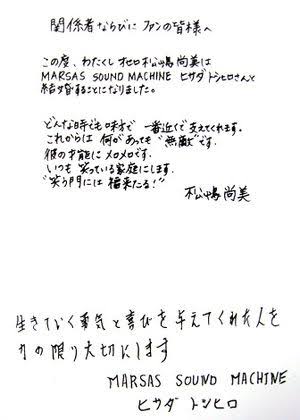 関係者ならびに ファンの皆様へ
この度、わたくし オセロ 松嶋尚美は
MARSAS SOUND MACHINE ヒサダトシヒロさんと
結婚することになりました。
どんな時でも味方で 一番近くで支えてくれます。
これからは 何があっても“無敵”です。
彼の才能にメロメロです。
いつも 笑っている家庭にします。
“笑う門には 福来たる!”
松嶋尚美
生きていく勇気と喜びを与えてくれた人を
力の限り大切にします
MARSAS SOUND MACHINE
ヒサダ トシヒロ